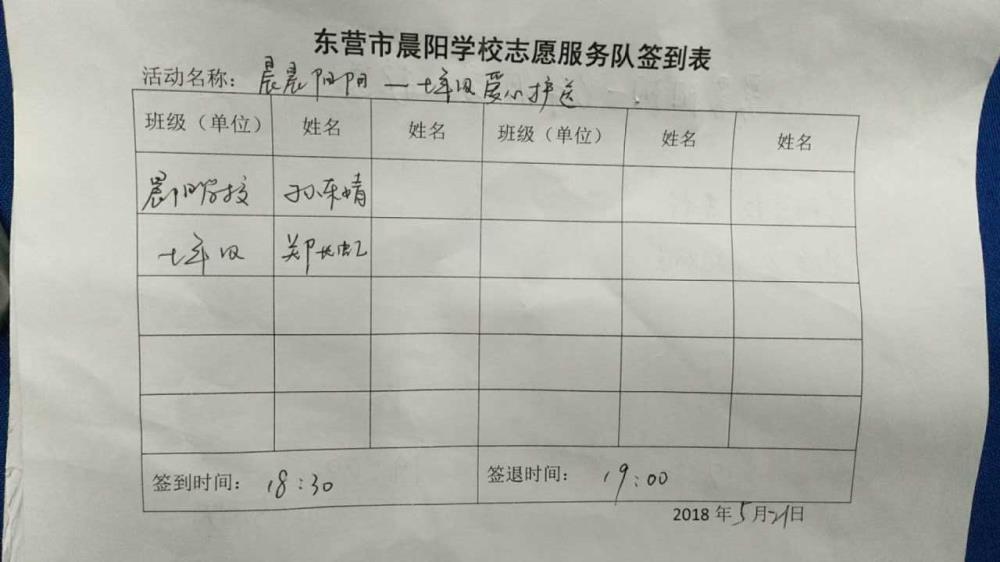 东营市晨阳学校志愿服务队签到表
活动名称：晨晨阳阳一七年级爱心护送
班级（单位） 姓名 姓名 班级（单位） 姓名 姓名
晨阳学校 孙东婧
七年级 郑长虹
签到时间： 18:30 签退时间： 19:00
2018年5月21日